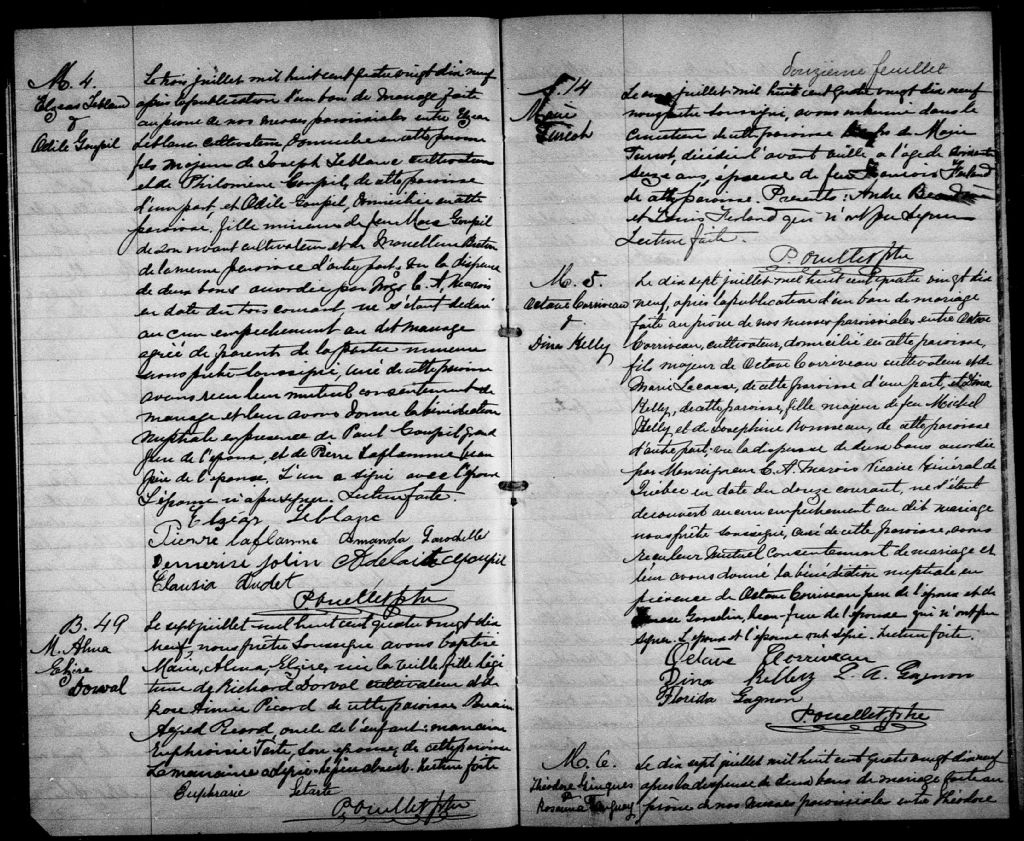 M. 4.
Elzear Leblanc
&
Odile Goupil
Le trois juillet mil huit cent quatre vingt dix neuf
après la publication d'un ban de mariage faite
au prône de nos messes paroissiales entre Elzear
Leblanc cultivateur, domicilié en cette paroisse
fils majeur de Joseph Leblanc cultivateur
et de Philomène Goupil, de cette paroisse
d'une part, et Odile Goupil, domiciliée en cette
paroisse, fille mineure de feu Marc Goupil
de son vivant cultivateur et de
de la même paroisse d'autre part; vu la dispense
de deux bans accordée par Mgr C. A. Marois
en date du trois courant, ne s'étant déclaré
aucun empêchement au dit mariage
agréé de parents de la partie mineure
nous prêtre soussigné, curé de cette paroisse
avons reçu leur mutuel consentement de
mariage et leur avons donné la bénédiction
nuptiale en présence de Paul Goupil grand
père de l'époux, et de Pierre Laflamme, beau
père de l'épouse, L'un a signé avec l'époux
L'épouse n'a pu signer. Lecture faite.
Elzéar Leblanc
Pierre laflamme Amanda Parodelle
Demerise Jolin Adelaite Goupil
Clausia Dudet
P. Ouellet ptre
B. 49
M. Alma
Elzire
Dorval
Le sept juillet mil huit cent quatre vingt dix
neuf, nous prêtre soussigné avons baptisé
Marie, Alma, Elzire, née la veille, fille légi
time de Richard Dorval cultivateur et de
Rose Aimée Picard de cette paroisse Parrain
Picard, oncle de l'enfant: marraine
Euphrosie Tarte, son épouse, de cette paroisse
La marraine a signé. Lecture faite
Euphrasie
P. Ouellet ptre
douzieme feuillet
S. 14
Marie
Turcot
Le onze juillet mil huit cent quatre vingt dix neuf
nous prêtre soussigné, avons inhumé dans le
cimetière de cette paroisse le corps de Marie
Turcot, décédée l'avant veille à l'âge de soixante
seize ans, épouse de feu François Ferland
de cette paroisse. Presents: Andre Beaudoin
et Louis Ferland qui n'ont pu signer
Lecture faite.
P. Ouellet ptre
M. 5.
Octave Corriveau
&
Dina Kelly
Le dix sept juillet mil huit cent quatre vingt dix
neuf, après la publication d'un ban de mariage
faite au prône de nos messes paroissiales, entre Octave
Corriveau, cultivateur, domicilié en cette paroisse,
fils majeur de Octave Corriveau cultivateur et de
Marie Lacasse, de cette paroisse d'une part, et Dina
Kelly, de cette paroisse, fille majeur de feu Michel
Kelly et de Josephine Rousseau, de cette paroisse
d'autre part; vu la dispense de deux bans accordée
par Monseigneur C. A. Marois Vicaire Général de
Québec en date du douze courant, ne s'étant
découvert aucun empêchement au dit mariage
nous prêtre soussigné, curé de cette paroisse, avons
reçu leur mutuel consentement de mariage et
leur avons donné la bénédiction nuptiale en
présence de Octave Corriveau père de l'époux et de
Gosselin, beau-frère de l'épouse qui n'ont pu
signer. L'époux et l'épouse ont signé. Lecture faite.
Octave Corriveau
Dina Kelley L. A. Gagnon
Florida Gagnon
P. Ouellet ptre
M. 6.
Théodore Gingues
&
Rosanna Tanguay
Le dix sept juillet mil huit cent quatre vingt dix neuf
après la dispense de deux bans de mariage faite au
prône de nos messes paroissiales entre Théodore